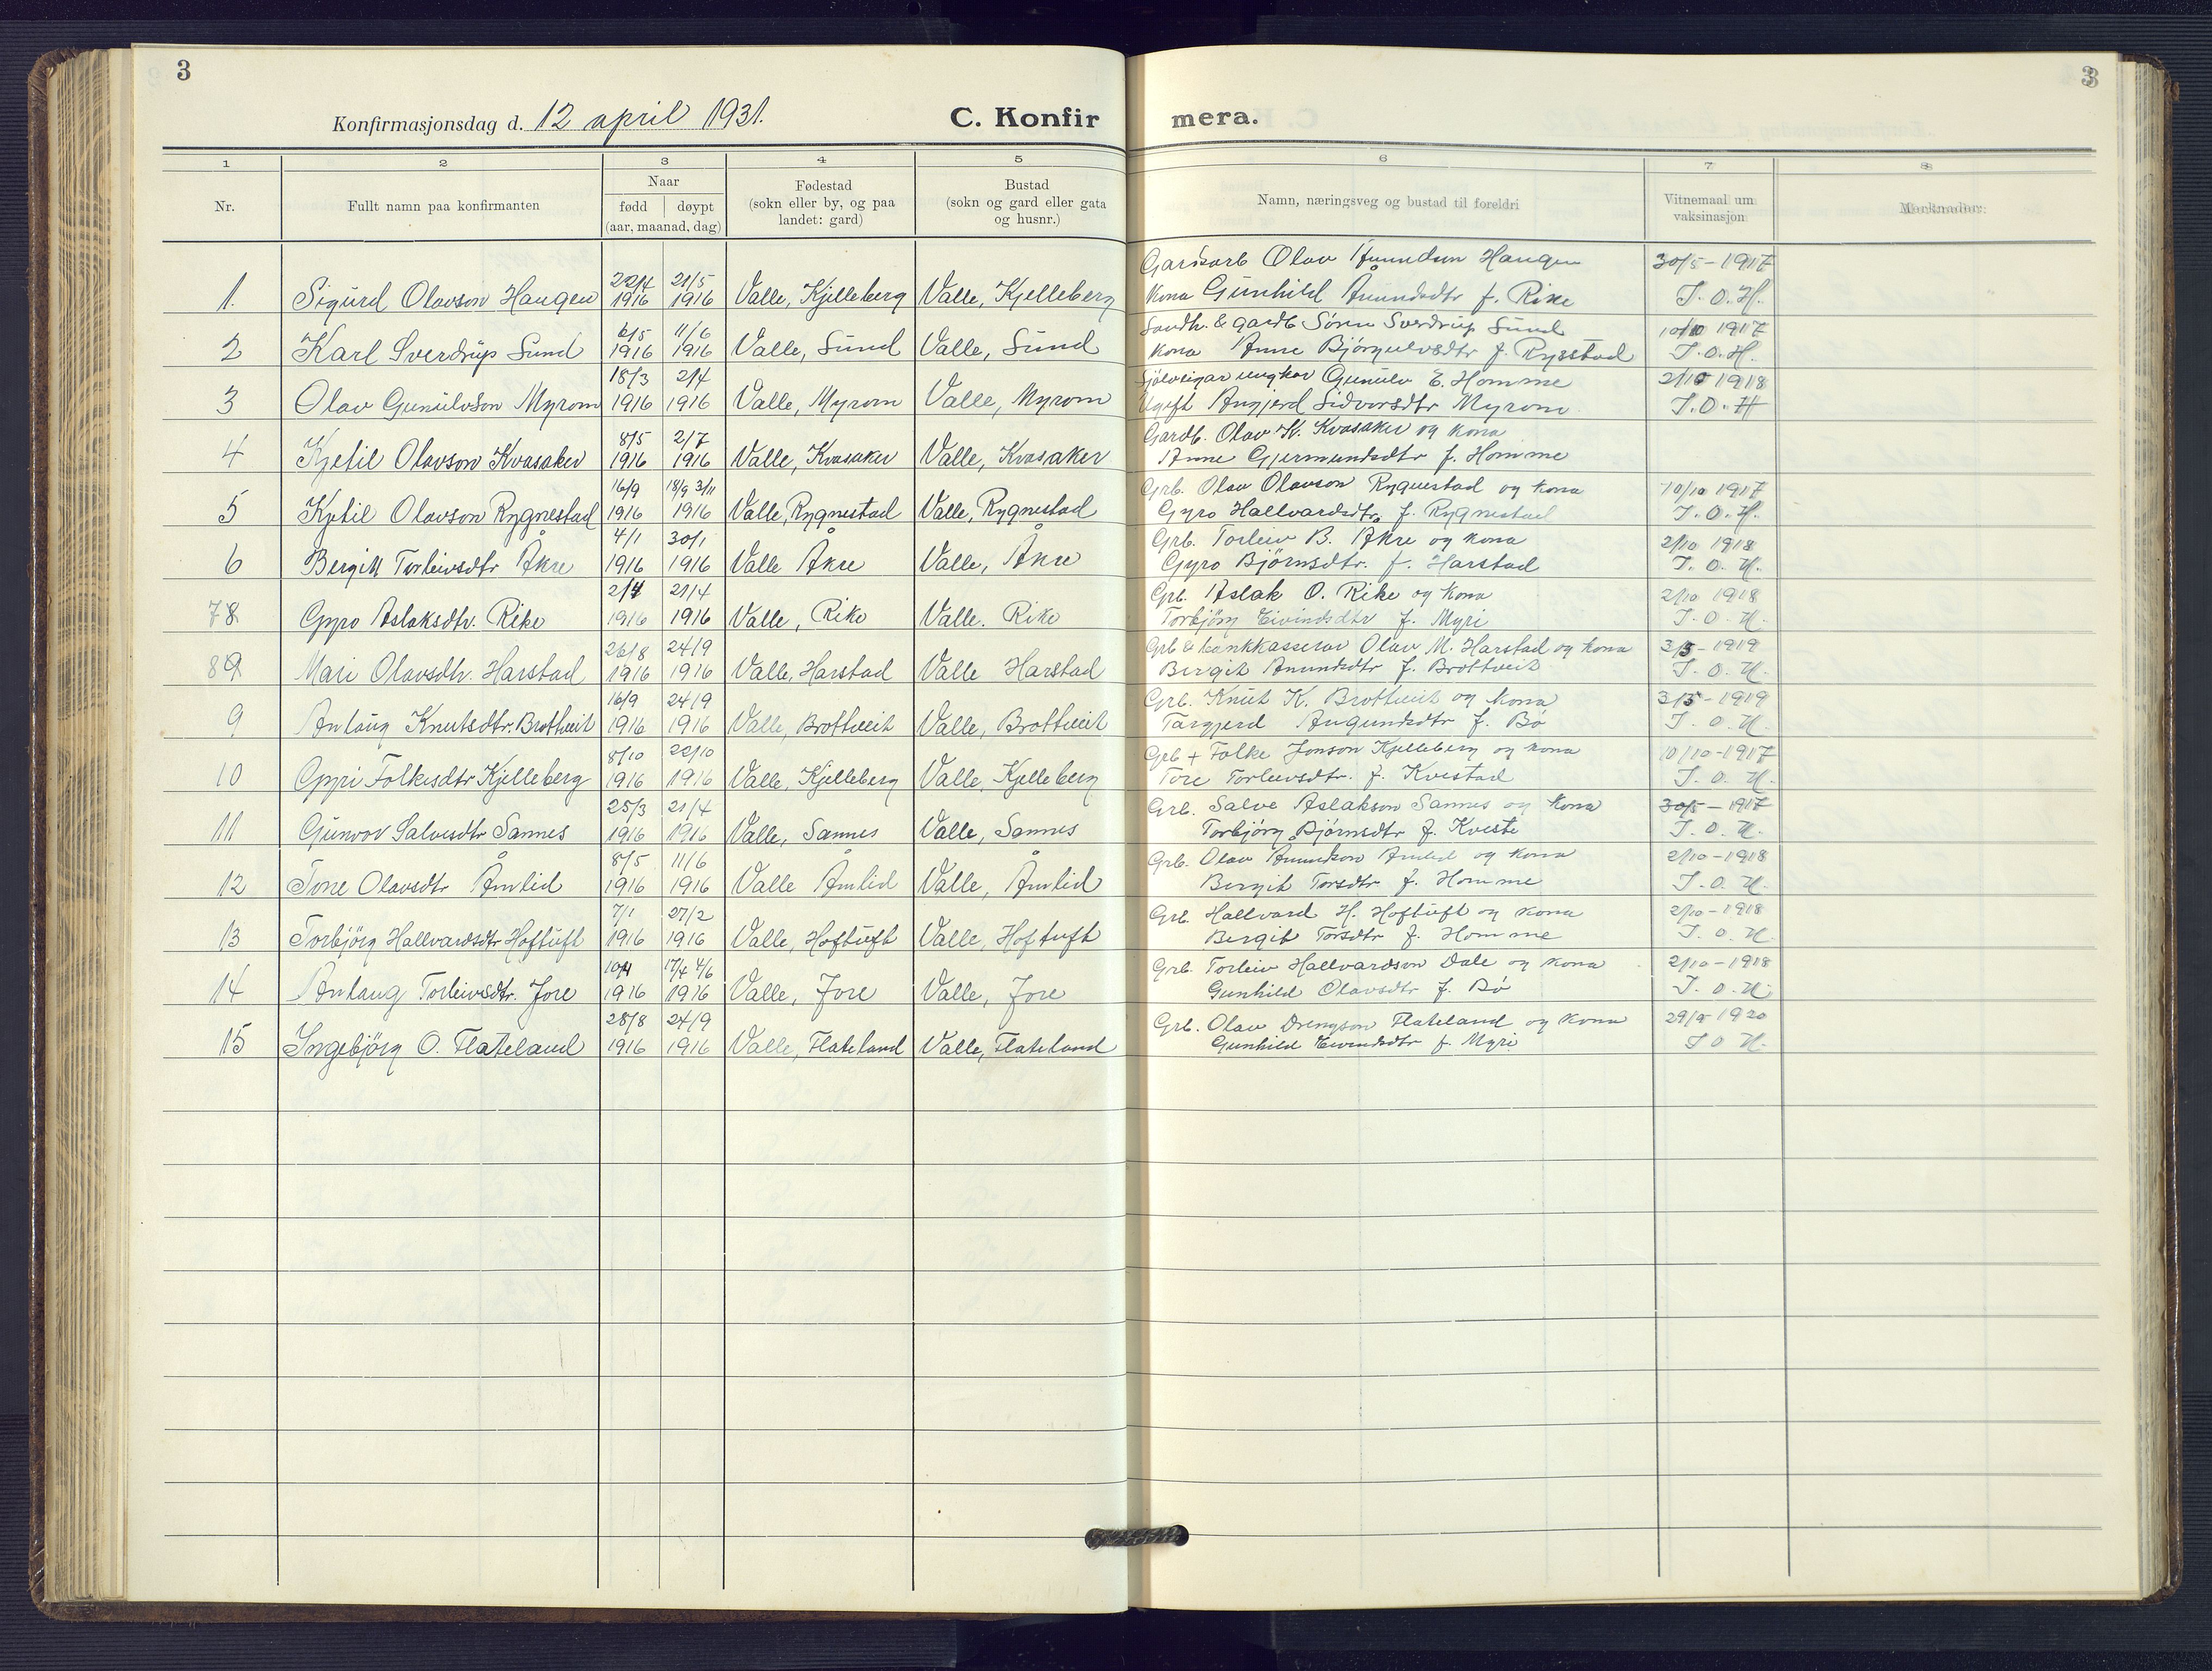 3
3
Konfirmasjonsdag d. 12 april 1931.
C. Konfir mera.
1 2 3 4 5 6 7 8
Nr.
Fullt namn paa konfirmanten
Naar
fødd døypt
(aar, maanad, dag)
Fødestad
(sokn eller by, og paa
landet: gard)
Bustad
(sokn og gard eller gata
og husnr.)
Namn, næringsveg og bustad til foreldri
Vitnemaal um
vaksinasjon
Merknader:
22/4 21/5 Olav Haugen 30/5 - 1917
1. Sigurd Olavson Haugen 1916 1916 Valle, Kjelleberg Valle, Kjelleberg Kona Gunhild Åmundsdtr f. Rike J. O. H.
6/5 11/6 Landh. & gardb. Søren Sverdrup Sund 10/10 1917
2 Karl Sverdrup Sund 1916 1916 Valle, Sund Valle, Sund Kona Anne Bjørgulvsdtr f. Rysstad J. O. H.
18/3 2/4 Sjølveigar ungkar Gunulv E. Homme 2/10 1918
3 Olav Gunulvson Myrom 1916 1916 Valle, Myrom Valle, Myrom Ugift Angjerd Sidvorsdtr Myrom J. O. H
8/5 2/7 Gardb. Olav K. Kvasaker og kona
4 Kjetil Olavson Kvasaker 1916 1916 Valle, Kvasaker Valle, Kvasaker Anne Gjermundsdtr f. Homme
16/9 18/9 3/11 Grb. Olav Olavson Rygnestad og kona 10/10 1917
5 Kjetil Olavson Rygnestad 1916 1916 Valle, Rygnestad Valle, Rygnestad Gyro Hallvardsdtr. f. Rygnestad J. O. H.
4/1 30/1 Grb. Torleiv B. Åkre og kona 2/10 1918
6 Bergit Torleivsdtr Åkre 1916 1916 Valle Åkre Valle, Åkre Gyro Bjørnsdtr. f. Harstad J. O. H.
2/4 21/4 Grb. Aslak O. Rike og kona 2/10 1918
7 8 Gyro Aslaksdtr. Rike 1916 1916 Valle, Rike Valle. Rike Torbjørg Eivindsdtr f. Myri J. O. H.
26/8 24/9 Grb & bankkasserar Olav M. Harstad og kona 3/5 - 1919
8 9 Mari Olavsdtr. Harstad 1916 1916 Valle, Harstad Valle Harstad Bergit Amundsdtr f. Brottveit J. O. H.
16/9 24/9 Grb. Knut K. Brottveit og kona 3/5 - 1919
9 Anlaug Knutsdtr. Brottveit 1916 1916 Valle, Brottveit Valle, Brottveit Targjerd Augundsdtr f. Bø J. O. H.
8/10 22/10 Grb + Folke Jonson Kjelleberg og kona 10/10 - 1917
10 Gyri Folkesdtr Kjelleberg 1916 1916 Valle, Kjelleberg Valle, Kjelleberg Tore Torleivsdtr. f. Kvestad J. O. H.
25/3 21/4 Grb. Salve Aslakson Sannes og kona 30/5 - 1917
11 Gunvor Salvesdtr Sannes 1916 1916 Valle, Sannes Valle, Sannes Torbjørg Bjørnsdtr f. Kveste J. O. H.
8/5 11/6 Grb. Olav Åmundson Åmlid og kona 2/10 - 1918
12 Tone Olavsdtr Åmlid 1916 1916 Valle Åmlid Valle, Åmlid Bergit Torsdtr f. Homme J. O. H.
7/1 27/2 Grb. Hallvard H. Hoftuft og kona 2/10 - 1918
13 Torbjörg Hallvardsdtr Hoftuft 1916 1916 Valle, Hoftuft Valle, Hoftuft Bergit Torsdtr f. Homme J. O. H.
10/4 17/4 4/6 Grb. Torleiv Hallvardson Dale og kona 2/10 - 1918
14 Anlaug Torleivsdtr. Jore 1916 1916 Valle, Jore Valle, Jore Gunhild Olavsdtr f. Bø J. O. H.
28/8 24/9 Grb. Olav Drengson Flateland og kona 1920
15 Ingebjörg O. Flateland 1916 1916 Valle, Flateland Valle, Flateland Gunhild Eivindsdtr f. Myri J O H.